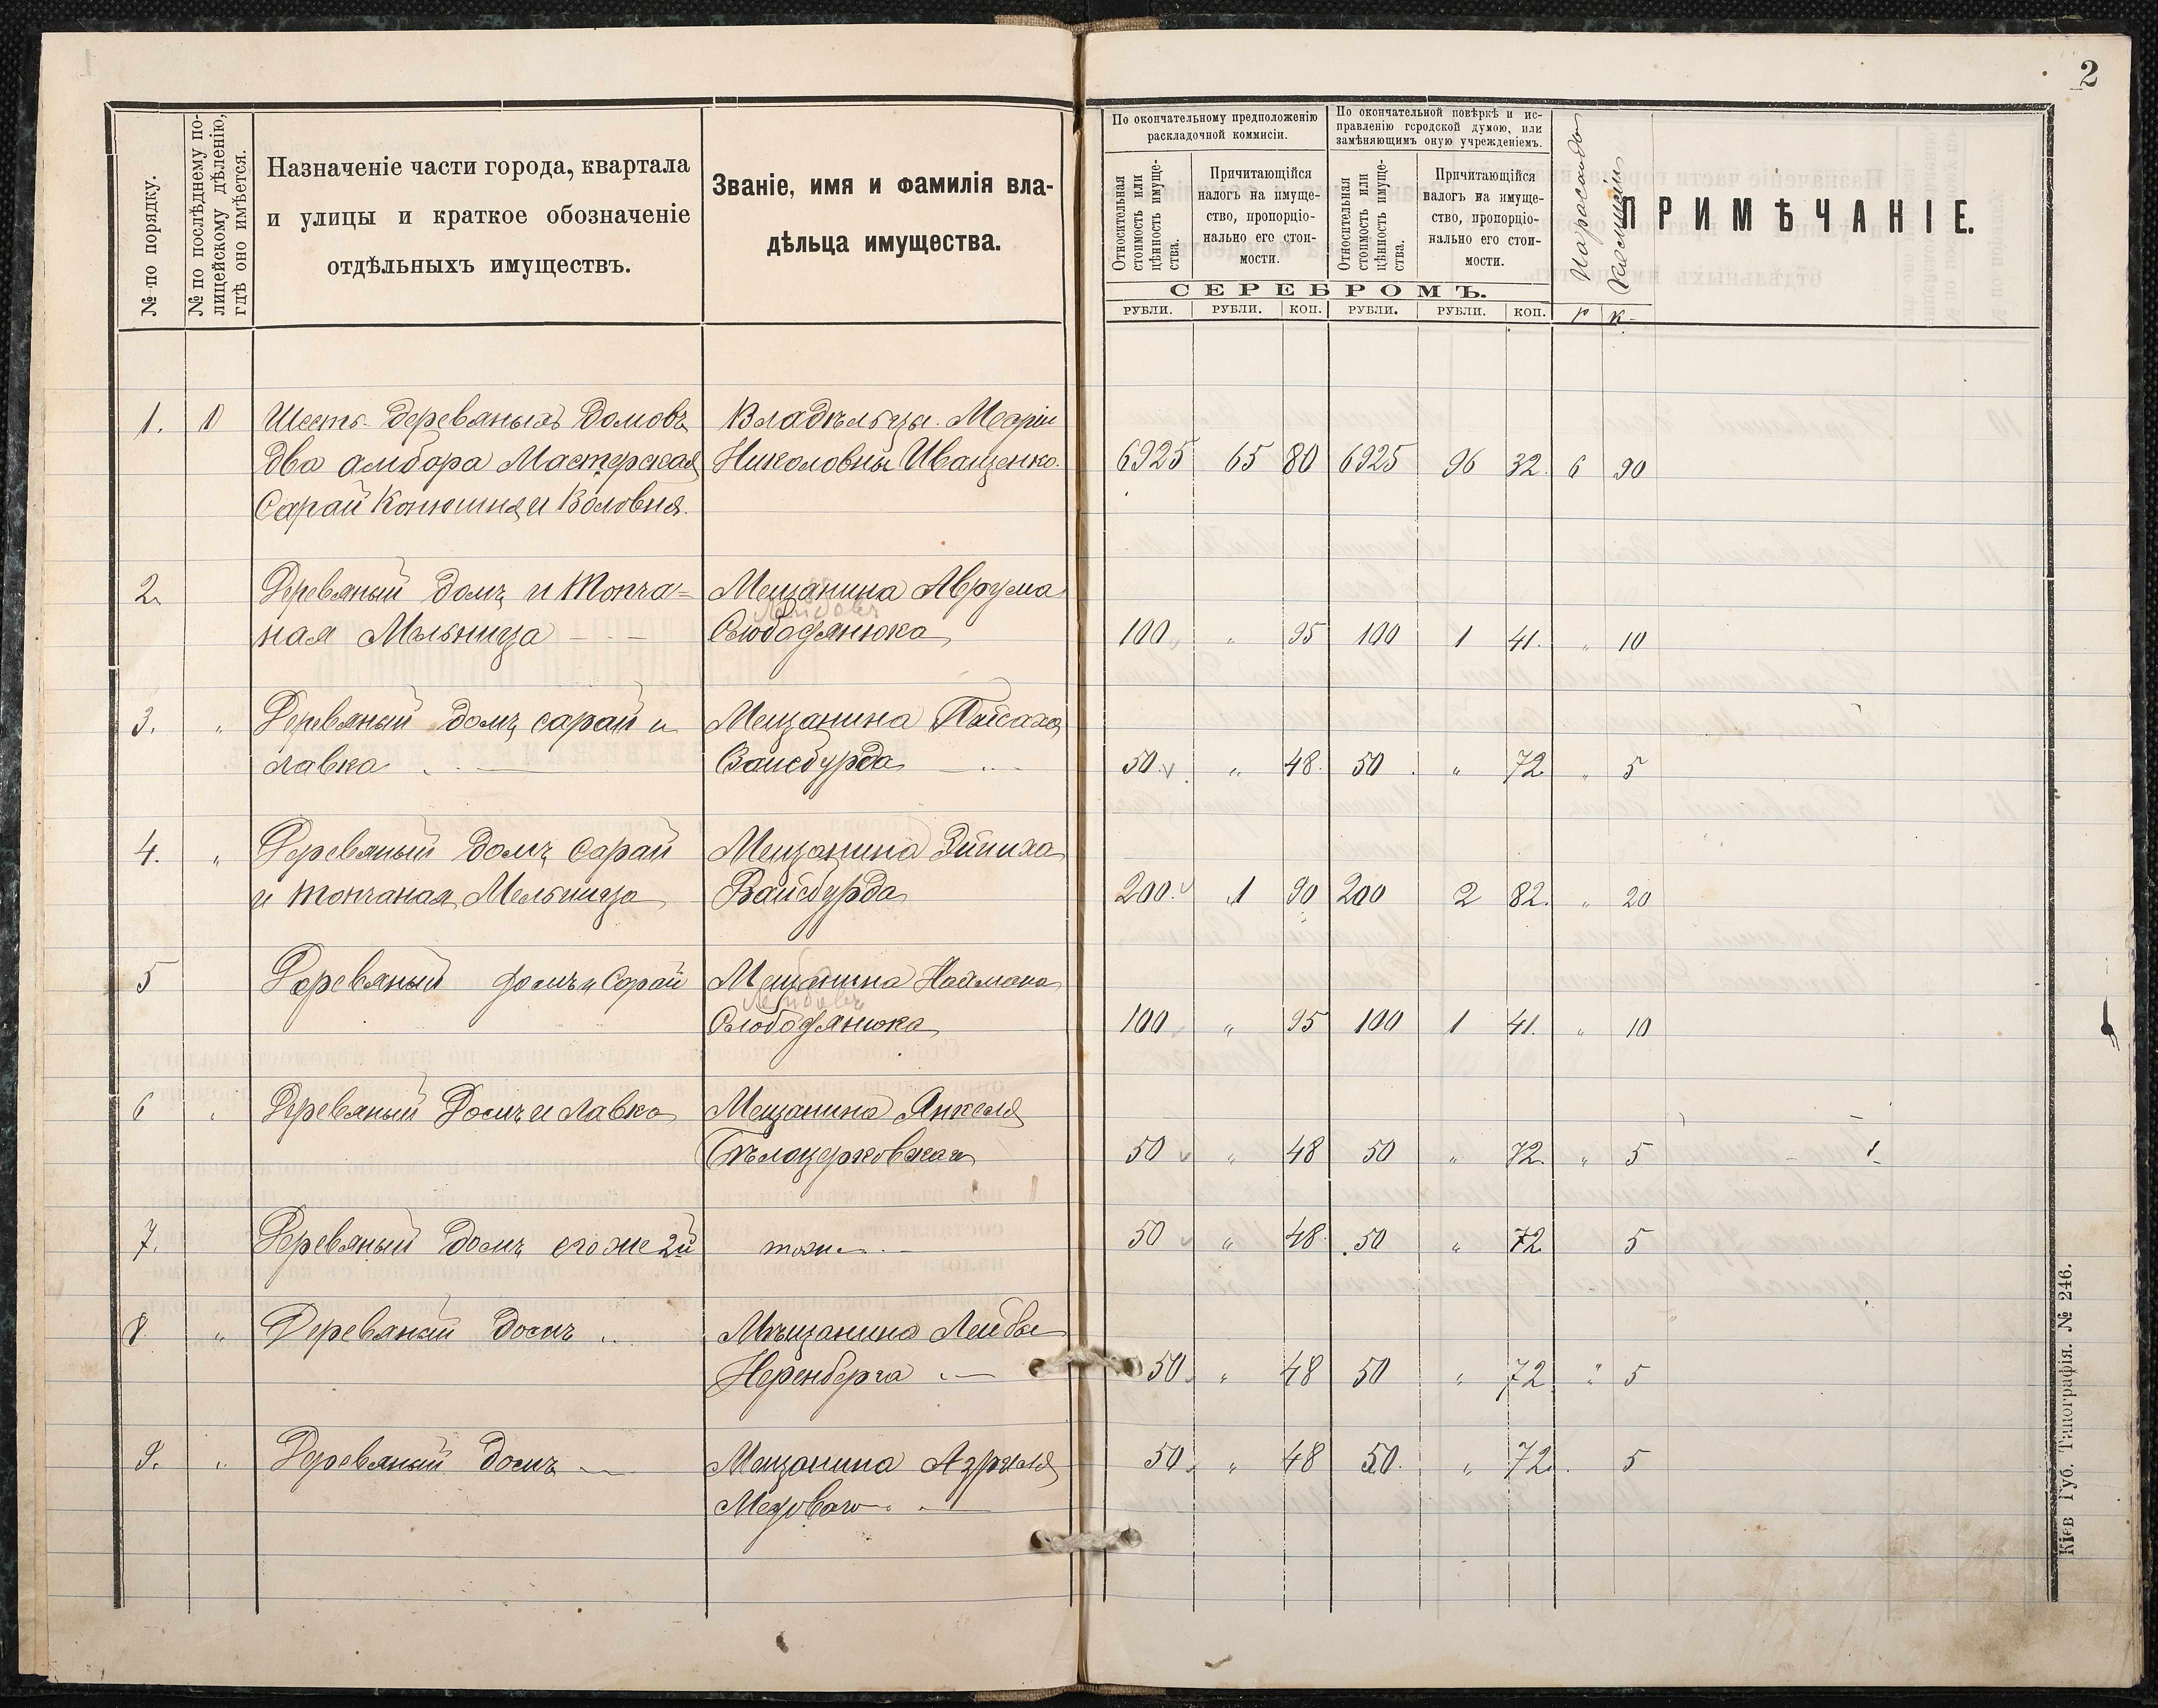 2
№ по порядку.
№ по послѣднему по-
лицейскому дѣленію,
гдѣ оно имѣется.
Назначеніе части города, квартала
и улицы и краткое обозначеніе
отдѣльныхъ имуществъ.
Званіе, имя и фамилія вла-
дѣльца имущества.
По окончательному предположенію
раскладочной коммисіи.
Относительная
стоимость или
цѣнность имуще-
ства.
Причитающійся
налогъ на имуще-
ство, пропорціо-
нально его стои-
мости.
По окончательной повѣркѣ и ис-
правленію городской думою, или
замѣняющимъ оную учрежденіемъ.
Относительная
стоимость или
цѣнность имуще-
ства.
Причитающійся
налогъ на имуще-
ство, пропорціо-
нально его стои-
мости.
СЕРЕБРОМЪ.
РУБЛИ. РУБЛИ. КОП. РУБЛИ. РУБЛИ. КОП. р к
На расходы
ПРИМѢЧАНІЕ.
1. 1 Шесть деревяныхъ домовъ Владѣльцы Маріи
два амбора Мастерская Николовны Иващенко. 6925 65 80 6925 96 32. 6 90
Сарай Конюшня и Воловня.
2. Деревяный домъ и Топча=
ная Мельница Мещанина Аврума
Слободянюка 100 " 95 100 1 41. " 10
3. " Деревяный домъ сарай и Мещанина Пейсаха
лавка Вайсбурда 50. " 48. 50. " 72 " 5
4. " Деревяный домъ сарай Мещанина
и топчаная Мельница Вайсбурда 200. 1 90 200 2 82. " 20
5 Деревяный домъ и Сарай Мещанина Наймана
Слободянюка 100 " 95 100 1 41. " 10
6 " Деревяный Домъ и Лавка Мещанина Янкеля
Бѣлоцерковскаго 50 " 48 50 " 72. " 5
7. Деревяный домъ егоже 2й тоже 50 " 48. 50 " 72 5
8. " Деревяный домъ Мѣщанина Лейбы
Неренберга 50 " 48 50 " 72. " 5
9. " Деревяный домъ Мещанина Азріеля 50 " 48 50. " 72. 5
Медоваго
Кіев Губ. Типографія. № 246.